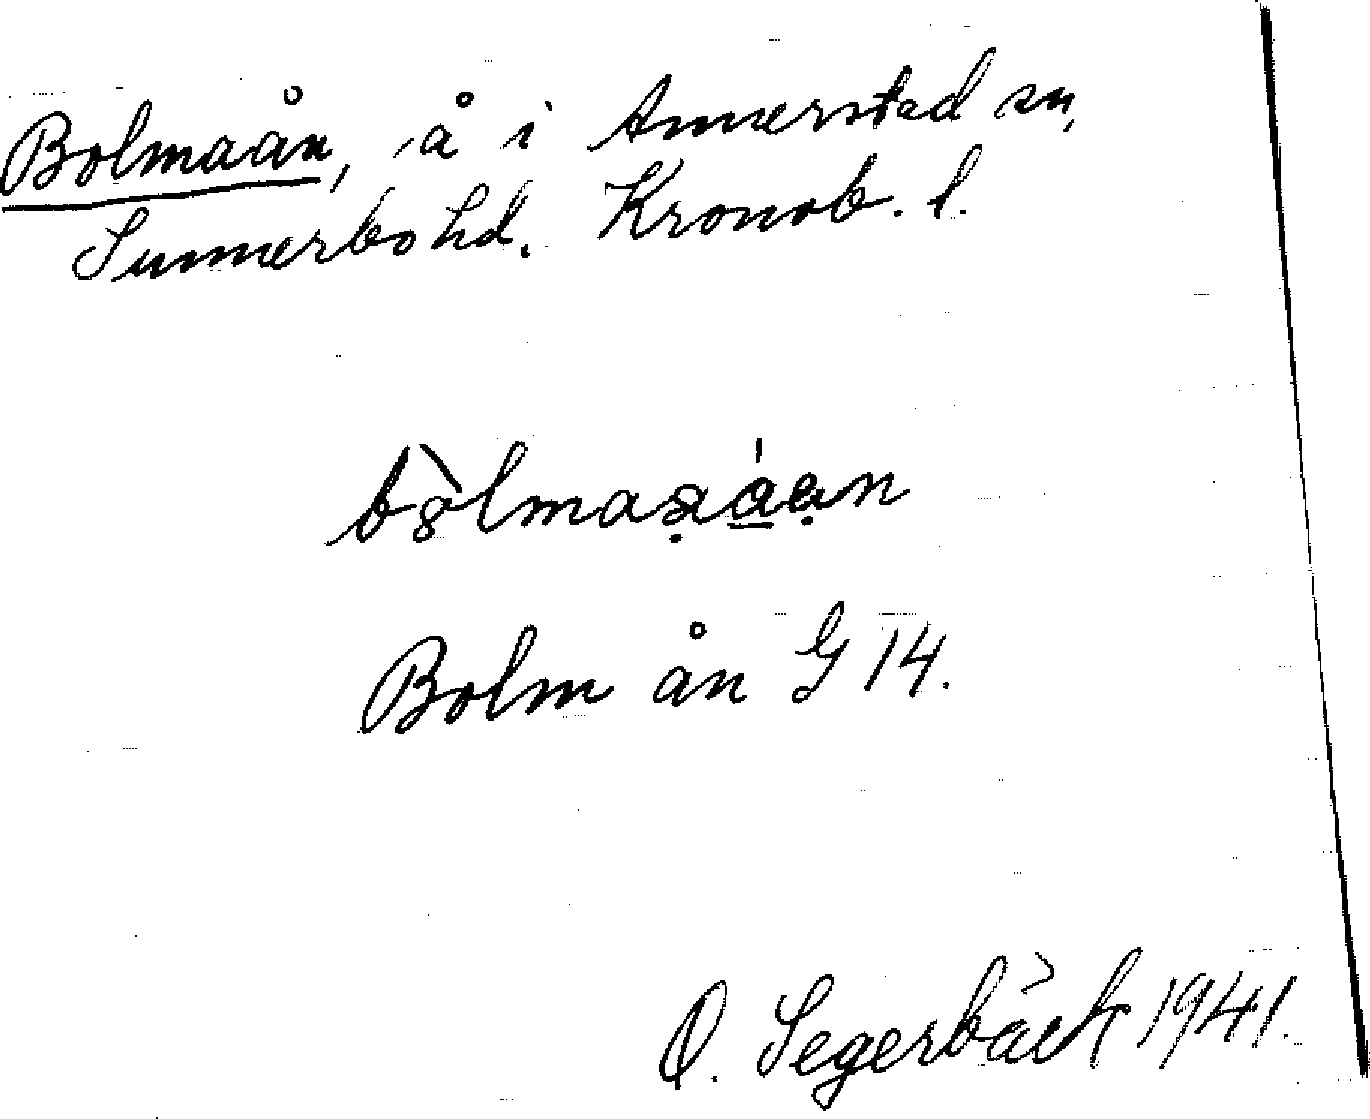 Bolmaån, å i Annerstad sn,
Sunnerbo hd. Kronob. l.
Bolm ån G 14.
O. Segerbäck 1941.